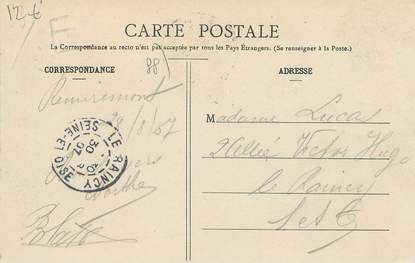 12 €
F
CARTE POSTALE
La Correspondance au recto n'est pas acceptée par tous les Pays Étrangers. (Se renseigner à la Poste.)
CORRESPONDANCE
88
ADRESSE
Remiremont
29/8/07
Marthe
LE RAINCY
30
SEINE-ET-OISE
Madame Lucas
2 Allée Victor Hugo
le Raincy
S et O